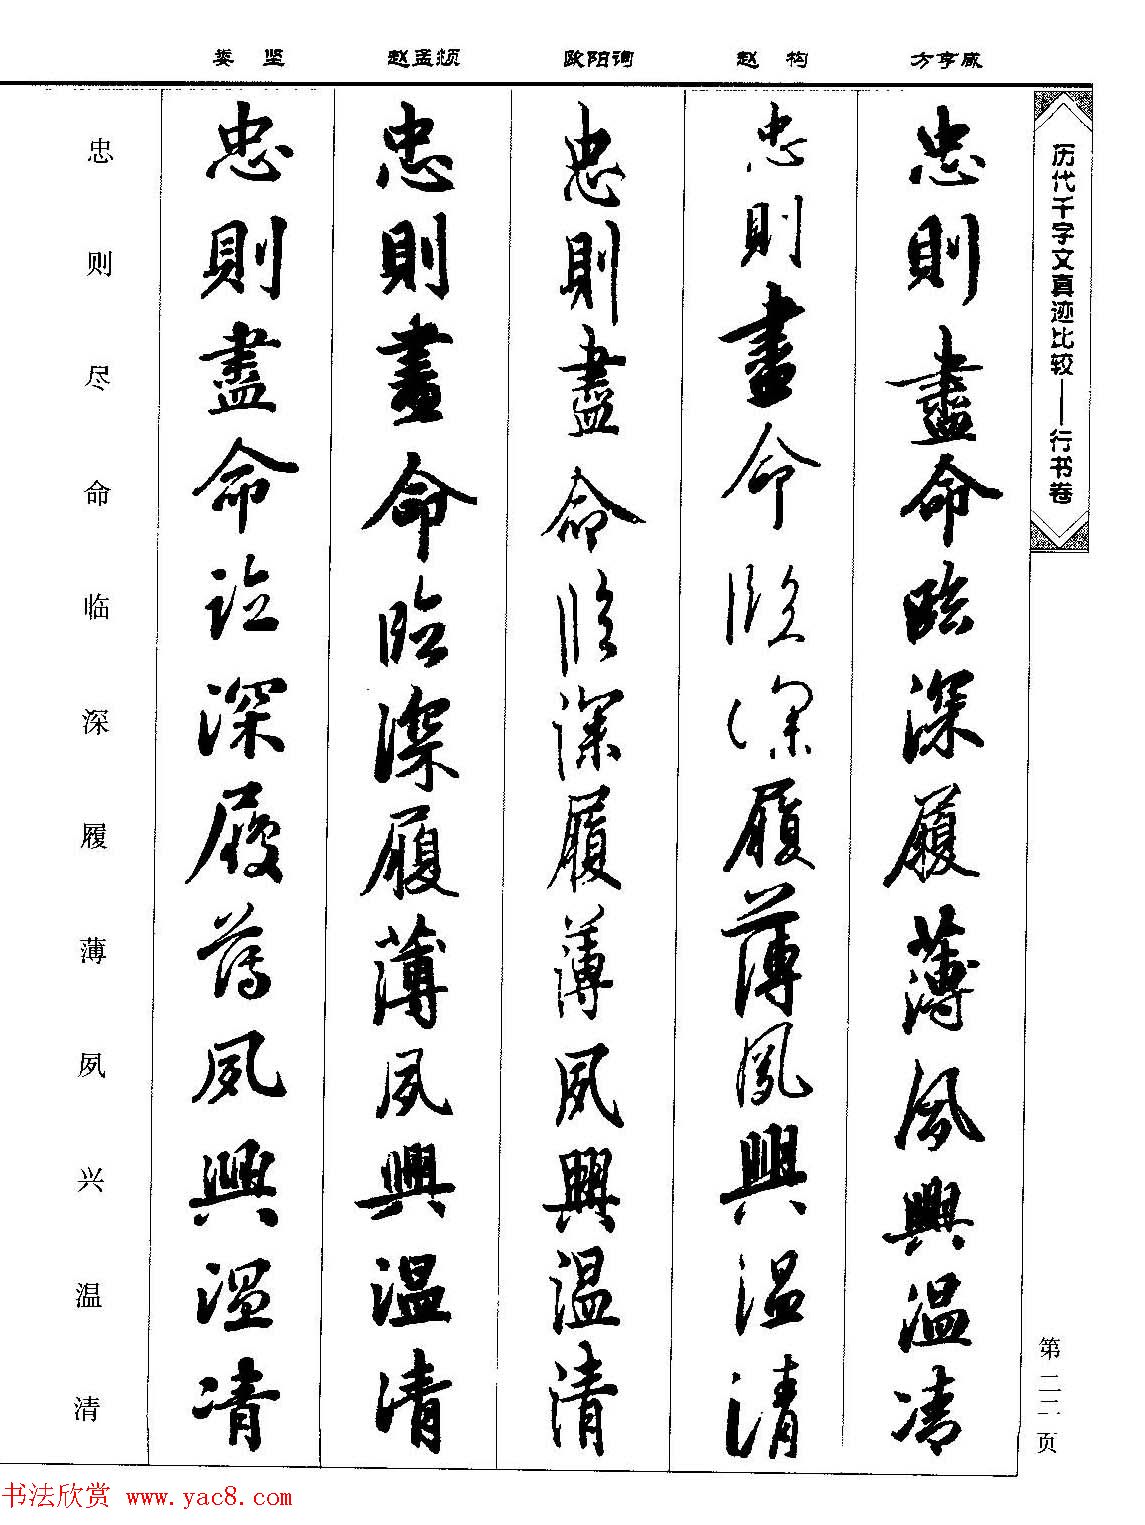 历代千字文真迹比较——行书卷
第二二页
方亨咸
忠則盡命臨深履薄夙興温凊
赵构
忠則盡命臨深履薄夙興温清
欧阳询
忠則盡命臨深履薄夙興温清
赵孟頫
忠則盡命臨深履薄夙興温清
娄坚
忠則盡命臨深履薄夙興温凊
忠则尽命临深履薄夙兴温清
书法欣赏 www.yac8.com